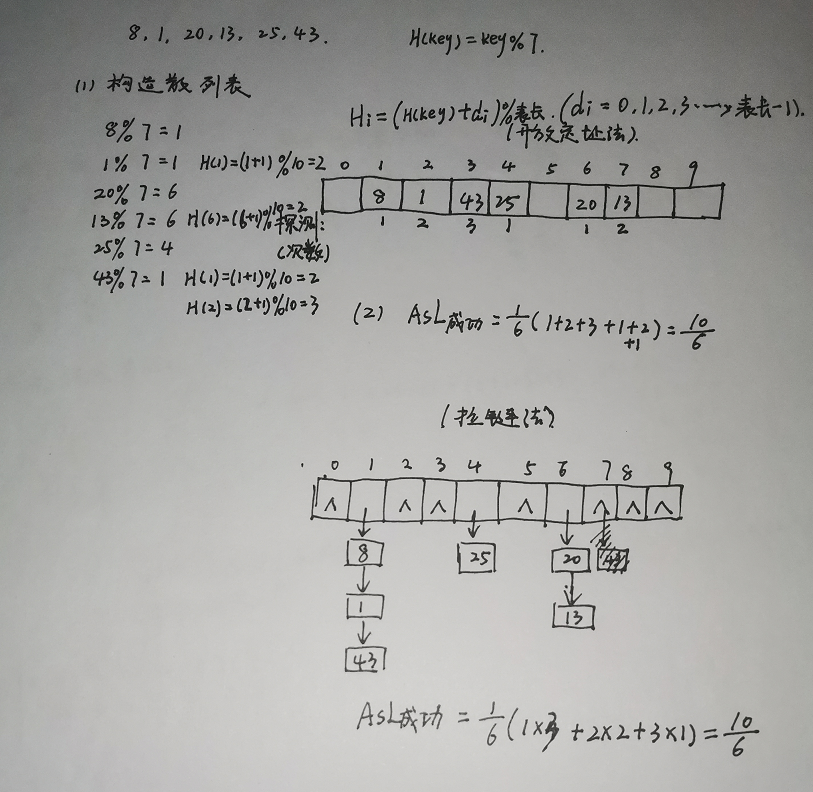 8, 1, 20, 13, 25, 43. H(key)=key%7.
(1) 构造散列表
Hi=(H(key)+di)%表长. (di=0,1,2,3……,表长-1).
(开放定址法).
8%7=1
1%7=1 H(1)=(1+1)%10=2
20%7=6
13%7=6 H(6)=(6+1)%10=2
25%7=4
43%7=1 H(1)=(1+1)%10=2
H(2)=(2+1)%10=3
0 1 2 3 4 5 6 7 8 9
8 1 43 25 20 13
探测: 1 2 3 1 1 2
(次数)
(2) ASL成功=1/6(1+2+3+1+2+1)=10/6
(拉链法)
0 1 2 3 4 5 6 7 8 9
∧ ∧ ∧ ∧ ∧ ∧ ∧
8 25 20
1 13
43
ASL成功=1/6(1×3+2×2+3×1)=10/6